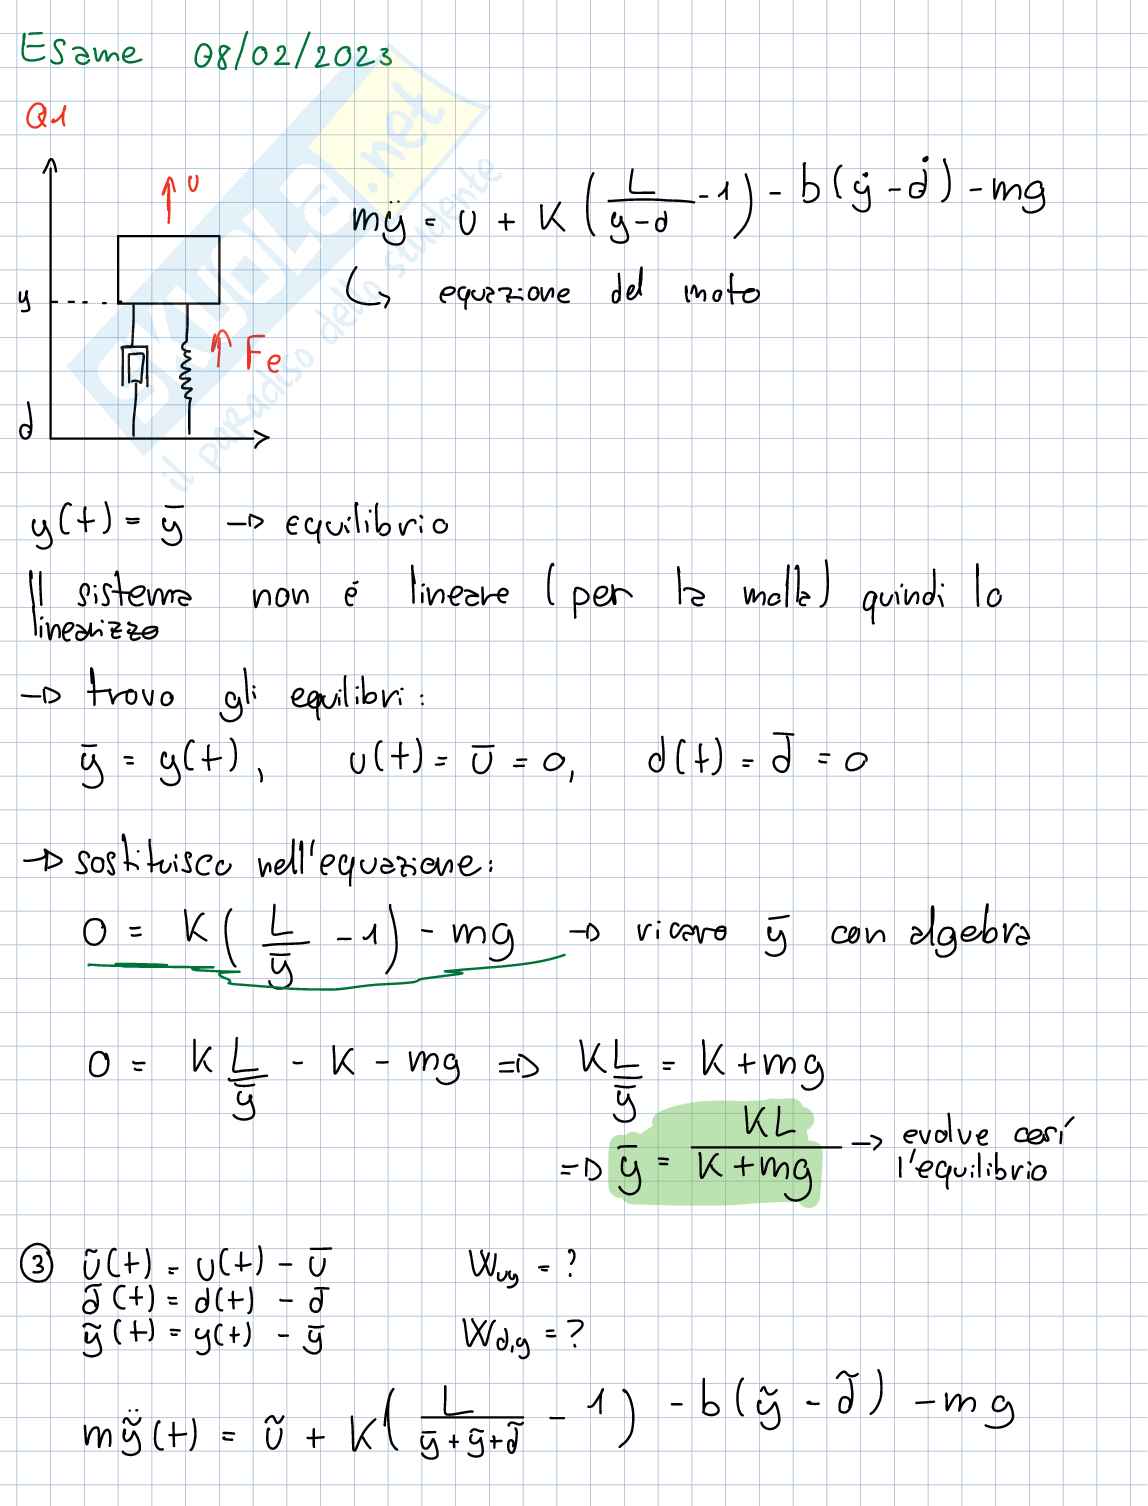 Esame 08/02/2023
Q1
U
mÿ = U + K (L/(y-d) - 1) - b(ẏ - ḋ) - mg
↳ equazione del moto
y
Fe
d
SKUOLA.net
il paradiso dello studente
y(t) = ȳ → equilibrio
Il sistema non é lineare (per la molla) quindi lo
linearizzo
→ trovo gli equilibri:
ȳ = y(t), u(t) = ū = 0, d(t) = d̄ = 0
→ sostituisco nell'equazione:
0 = K(L/ȳ - 1) - mg → ricavo ȳ con algebra
0 = K L/ȳ - K - mg => K L/ȳ = K + mg
=> ȳ = KL/(K + mg) → evolve così
l'equilibrio
③ ũ(t) = u(t) - ū Wuy = ?
d̃(t) = d(t) - d̄
ỹ(t) = y(t) - ȳ Wd,y = ?
mÿ̃(t) = ũ + K(L/(ȳ+ỹ+d̃) - 1) - b(ỹ - d̃) - mg